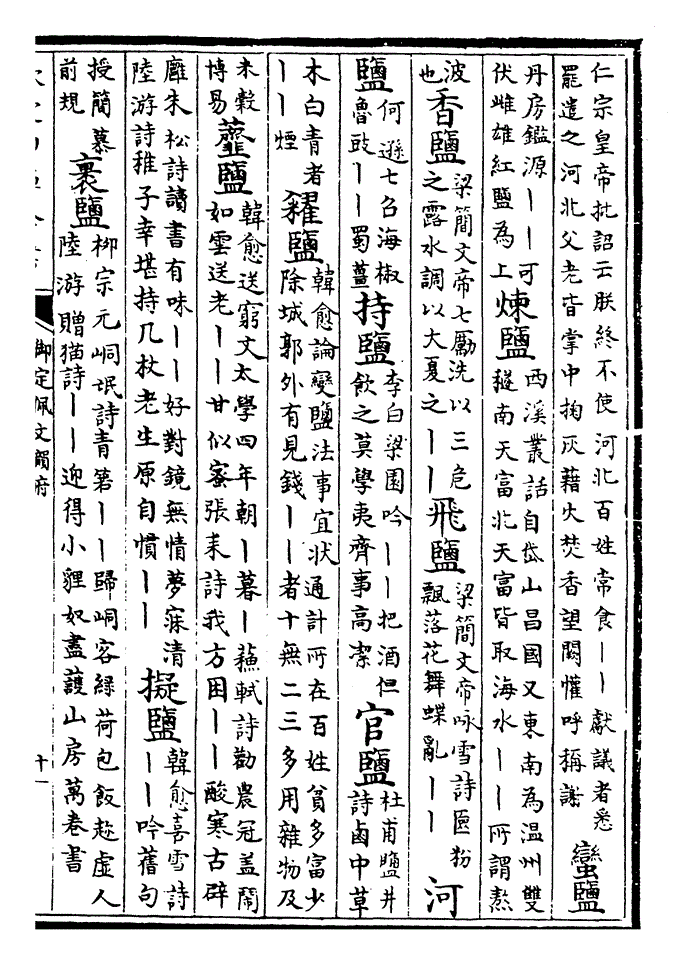 仁宗皇帝批詔云朕終不使河北百姓常食丨丨獻議者悉
罷遣之河北父老皆掌中掬灰藉火焚香望闕懽呼稱謝
蠻鹽
丹房鑑源丨丨可
伏雌雄紅鹽為上
煉鹽
西溪叢話自岱山昌國又東南為温州雙
穟南天富北天富皆取海水丨丨所謂熬
波
也
香鹽
梁簡文帝七勵洗以三危
之露水調以大夏之丨丨
飛鹽
梁簡文帝咏雪詩匳粉
飄落花舞蝶亂丨丨
河
鹽
何遜七召海椒
魯豉丨丨蜀薑
持鹽
李白梁園吟丨丨把酒但
飲之莫學夷齊事高潔
官鹽
杜甫鹽井
詩鹵中草
木白青者
丨丨煙
糴鹽
韓愈論變鹽法事宜狀通計所在百姓貧多富少
除城郭外有見錢丨丨者十無二三多用雜物及
米穀
博易
虀鹽
韓愈送窮文太學四年朝丨暮丨蘓軾詩勸農冠盖鬧
如雲送老丨丨甘似蜜張耒詩我方困丨丨酸寒古辟
廱朱松詩讀書有味丨丨好對鏡無情夢寐清
陸游詩稚子幸堪持几杖老生原自慣丨丨
擬鹽
韓愈喜雪詩
丨丨吟舊句
授簡慕
前規
裹鹽
柳宗元峒氓詩青箬丨丨歸峒客緑荷包飯趂虛人
陸游贈猫詩丨丨迎得小貍奴盡護山房萬卷書
御定佩文韻府
十一